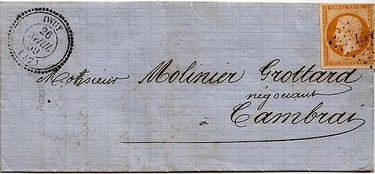 IWUY
26
AVRIL
59
(57)
Monsieur Molinier Grottard
négociant
à Cambrai